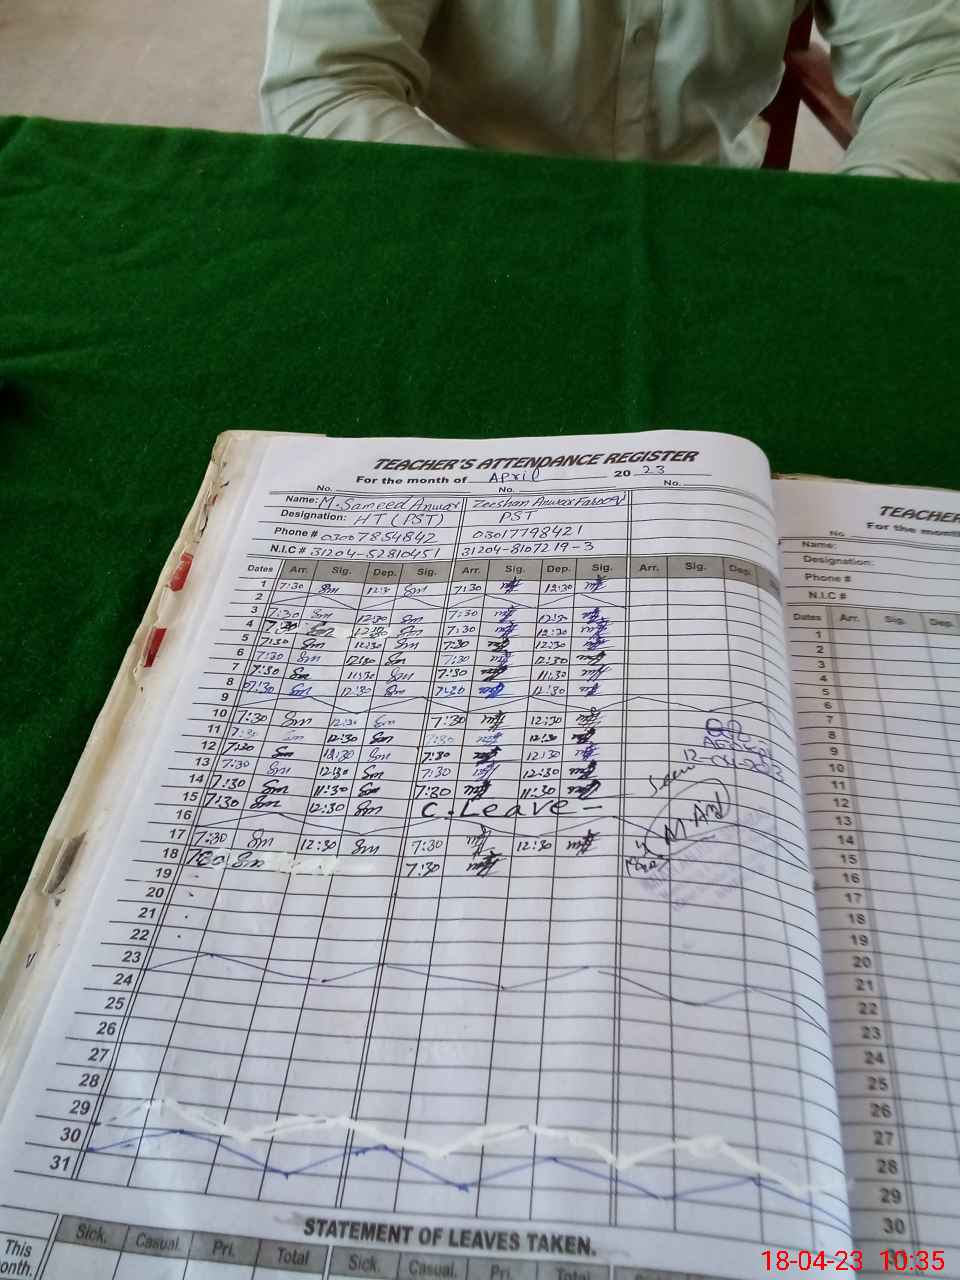 TEACHER'S ATTENDANCE REGISTER
For the month of April 2023
No. No. No.
Name: M. Sameed Anwar Zeeshan Anwar Farooq
Designation: HT (PST) PST
Phone # 03007854842 03017798421
N.I.C # 31204-52810451 31204-8107219-3
Dates Arr. Sig. Dep. Sig. Arr. Sig. Dep. Sig. Arr. Sig. Dep.
1 7:30 Sm 12:30 Sm 7:30 12:30
2
3 7:30 Sm 12:30 Sm 7:30 12:30
4 7:30 Sm 12:30 Sm 7:30 12:30
5 7:30 Sm 12:30 Sm 7:30 12:30
6 7:30 Sm 12:30 Sm 7:30 12:30
7 7:30 Sm 11:30 Sm 7:30 11:30
8 07:30 Sm 12:30 Sm 7:30 12:30
9
10 7:30 Sm 12:30 Sm 7:30 12:30
11 7:30 Sm 12:30 Sm 7:30 12:30
12 7:30 Sm 12:30 Sm 7:30 12:30
13 7:30 Sm 12:30 Sm 7:30 12:30
14 7:30 Sm 11:30 Sm 7:30 11:30
15 7:30 Sm 12:30 Sm C. Leave -
16
17 7:30 Sm 12:30 Sm 7:30 12:30
18 7:30 Sm 7:30
19
20
21
22
23
24
25
26
27
28
29
30
31
Seen
STATEMENT OF LEAVES TAKEN.
Sick. Casual. Pri. Total Sick. Casual. Pri. Total
This
onth.
TEACHER
For the month
No.
Name:
Designation:
Phone #
N.I.C #
Dates Arr. Sig. Dep.
1
2
3
4
5
6
7
8
9
10
11
12
13
14
15
16
17
18
19
20
21
22
23
24
25
26
27
28
29
30
18-04-23 10:35